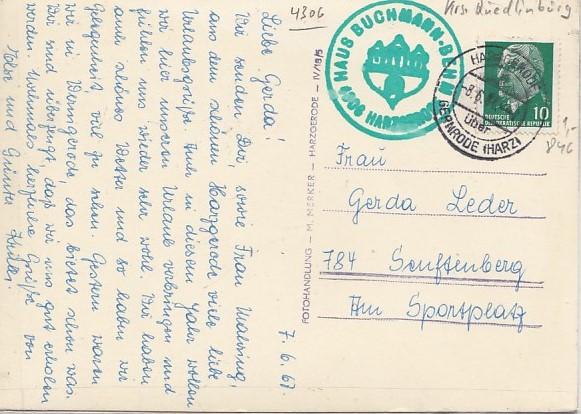 4306
Krs. Quedlinburg
7.6.67
Liebe Gerda!
Wir senden Dir, sowie Frau
aus dem schönen Harzgerode viele liebe
Urlaubsgrüße. Auch in diesem Jahr wollen
wir hier unseren Urlaub verbringen und
fühlen uns wieder sehr wohl. Wir haben
auch schönes Wetter und so haben wir
Gelegenheit viel zu sehen. Gestern waren
wir in Wernigerode, das bietet schon was.
Wir sind überzeugt, daß wir uns gut erholen
werden. Nochmals herzliche Grüße von
und Günter
FOTOHANDLUNG — M. MERKER — HARZGERODE — IV/18/5
HAUS BUCHMANN-BEHN
4306 HARZGERODE
HARZGERODE
über
GERNRODE (HARZ)
10
DEUTSCHE
DEMOKRATISCHE REPUBLIK
1,-
846
Frau
Gerda Leder
784 Senftenberg
Am Sportplatz